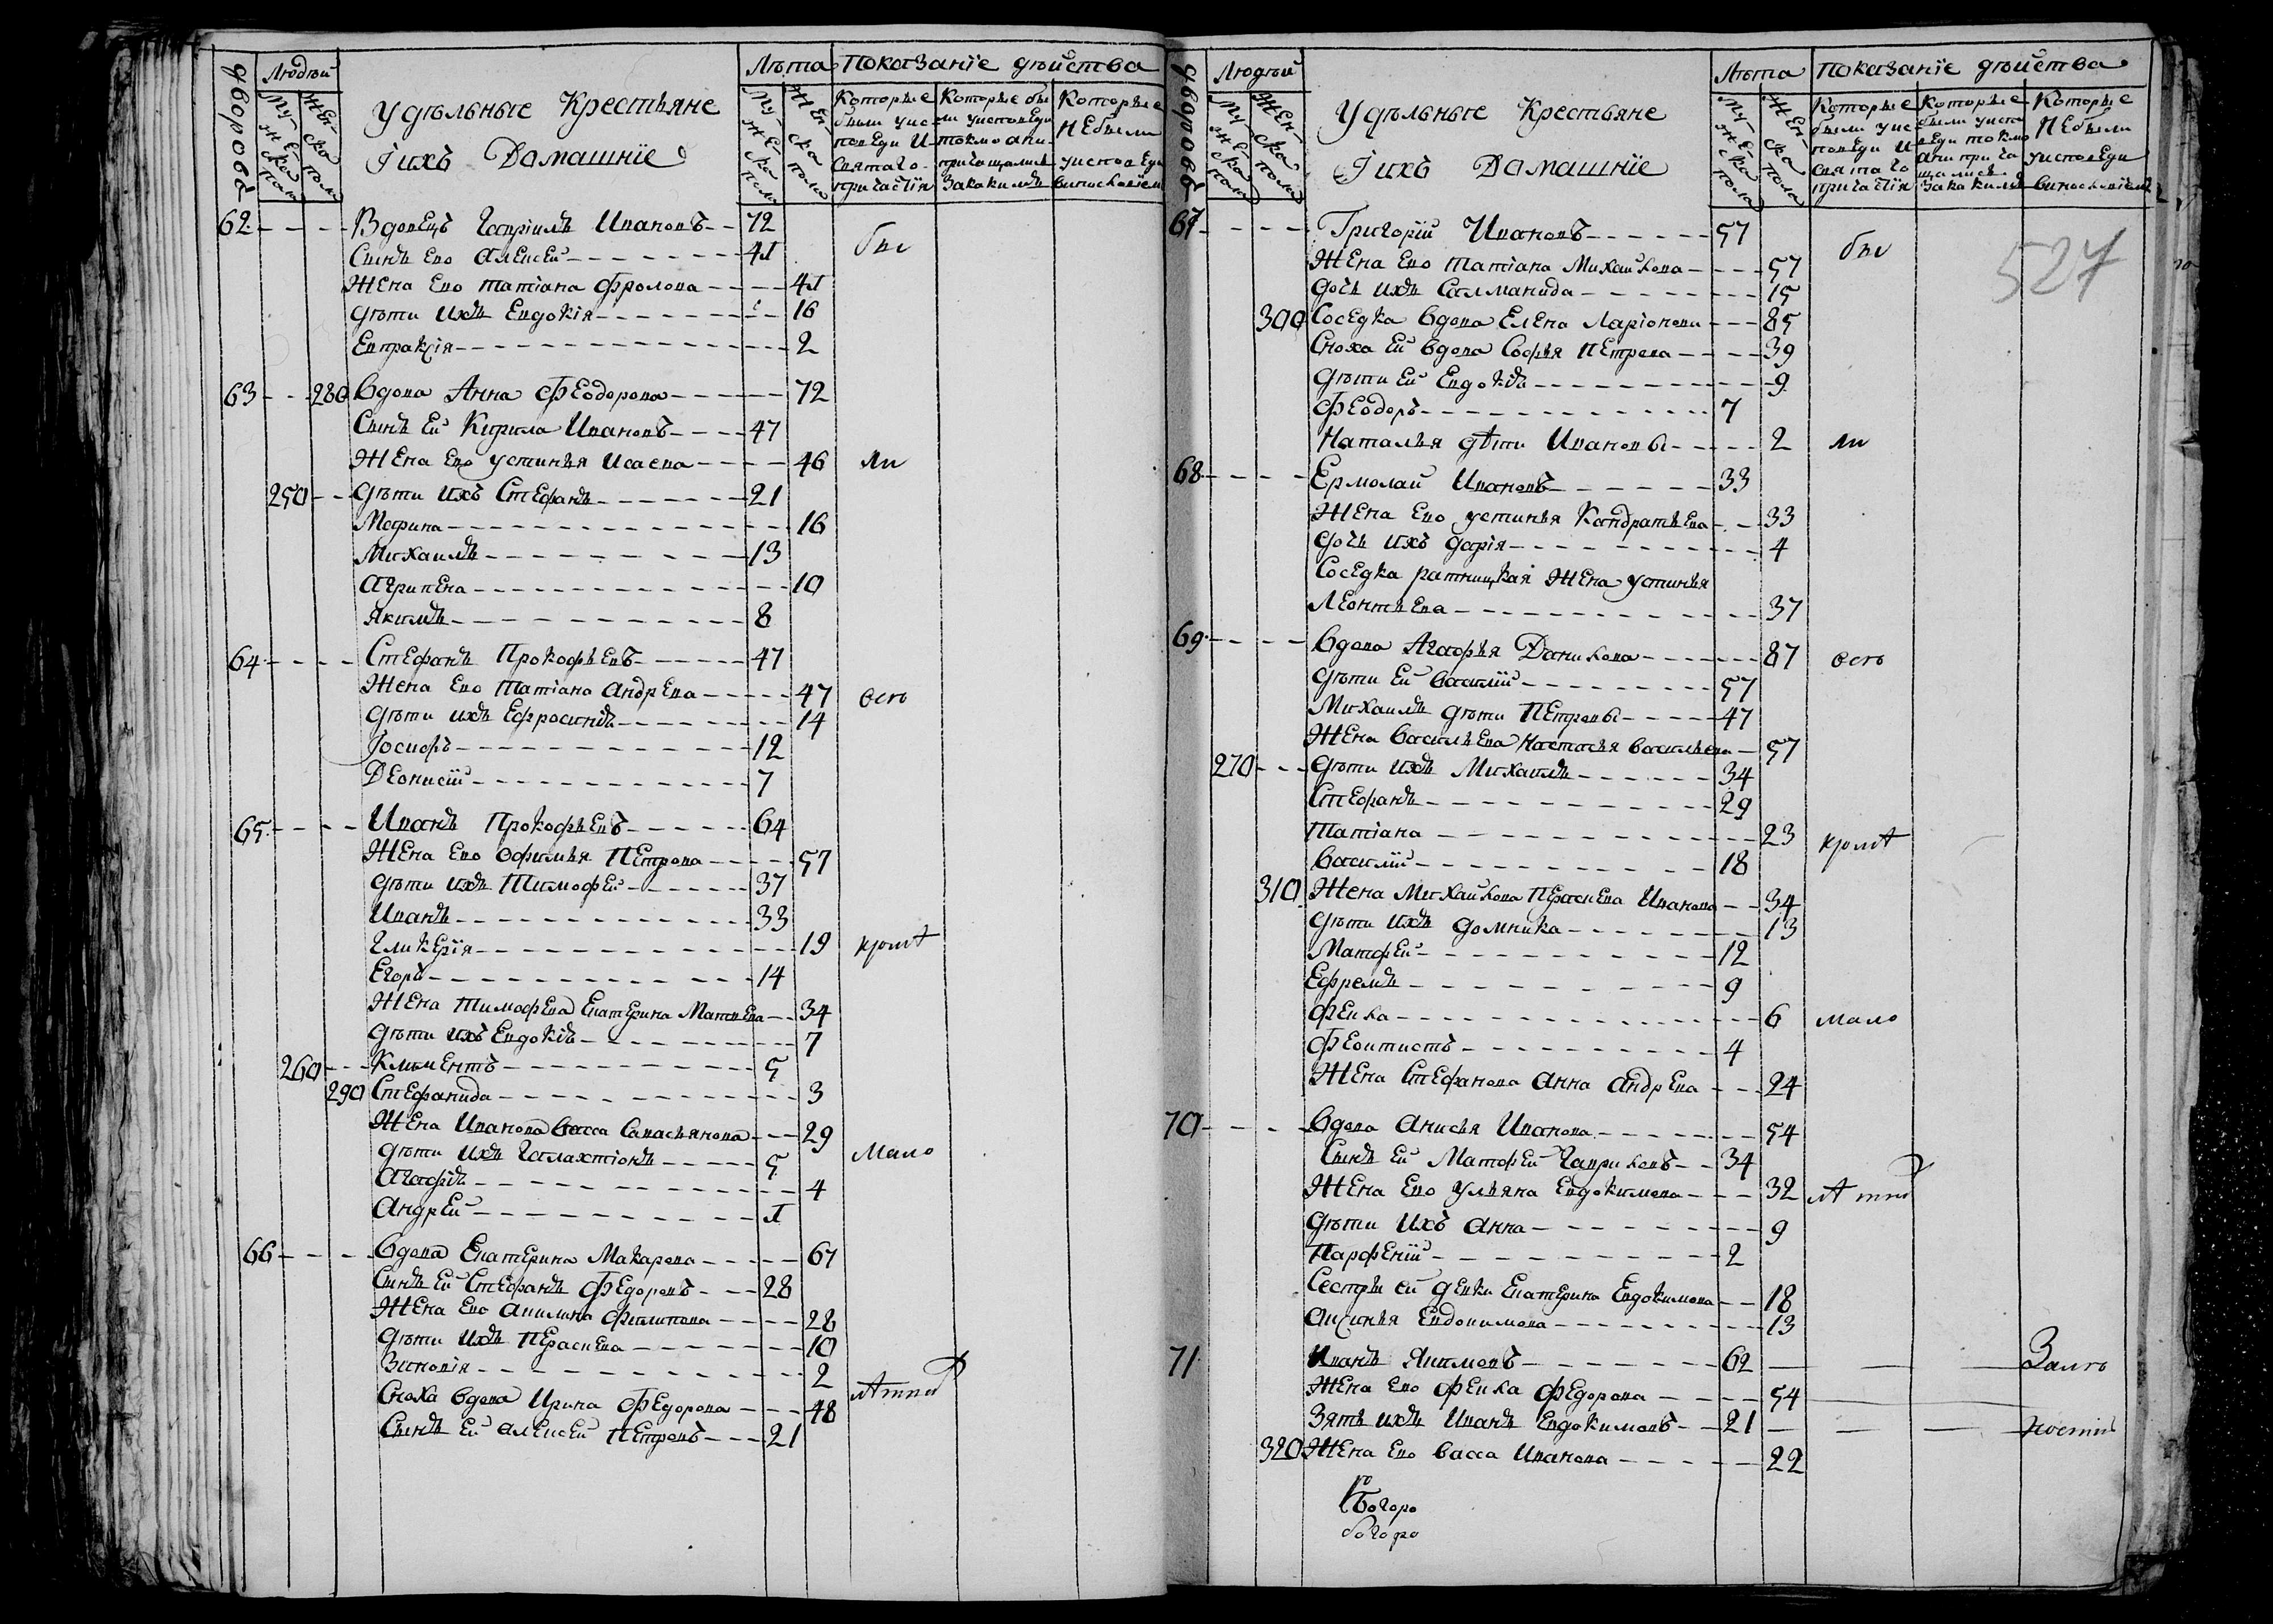 дворовъ
Людѣй
Му-жеска пола
Жен-ска пола
Удѣльные Крестьяне
Іихъ Домашніе
Лѣта
Му-жеска пола
Жен-ска пола
Показаніе дѣйства
Которые были уис-поведи и святаго причастія
Которые бы-ли уисповеди токмо а не причащались
Которые Небыли уисповеди
62 Вдовецъ Гавріилъ Ивановъ 72
Сынъ ево Алексей 41 бы
Жена ево татіана Фролова 41
дѣти ихъ Евдокія 16
Евпраксія 2
63 280 вдова Анна Феодорова 72
Сынъ ей Кирила Ивановъ 47
Жена ево устинья Исаева 46 ли
250 дѣти ихъ Стефанъ 21
Марина 16
Михаилъ 13
Агрипена 10
Якимъ 8
64 Стефанъ Прокофьевъ 47
Жена ево Татіана Андрева 47 всѣ
дѣти ихъ Ефросинь 14
Іосифъ 12
Деонисій 7
65 Иванъ Прокофьевъ 64
Жена ево Офимья Петрова 57
дѣти ихъ Тимофей 37
Иванъ 33
Гликерія 19 кромѣ
Егоръ 14
Жена тимофева Екатерина Матвева 34
дѣти ихъ Евдокіь 7
260 Климентъ 5
290 Стефанида 3
Жена Иванова васса Савастьянова 29
дѣти ихъ Галахтіонъ 5 мало
Агафіь 4
Андрей 1
66 вдова Екатерина Макарова 67
Сынъ ей Стефанъ Федоровъ 28
Жена ево Акилина филипова 28
дѣти ихъ Перасківа 10
Зиновія 2
Сноха вдова Ирина Федорова 48 лѣтнихъ
Сынъ ей алексей Петровъ 21
дворовъ
Людѣй
Му-жеска пола
Жен-ска пола
Удѣльные Крестьяне
Іихъ Домашніе
Лѣта
Му-жеска пола
Жен-ска пола
Показаніе дѣйства
Которые были уис-поведи и святаго причастія
Которые были уиспо-веди токмо а не прича-щались
Которые Небыли уисповеди
527
67 Григорій Ивановъ 57
Жена ево татіана Михайлова 57 бы
дочь ихъ Салманида 15
300 Соседка вдова Елена Ларіонова 85
Сноха ей вдова Софья Петрова 39
дѣти ей Евдокіь 9
Феодоръ 7
Наталья дѣти Ивановы 2 ли
68 Ермолай Ивановъ 33
Жена ево устинья Кандратьева 33
дочь ихъ дарія 4
Соседка ратницкая жена устинья
Леонтьева 37
69 вдова Агафья Данилова 87 всѣ
дѣти ей василій 57
Михаилъ дѣти Петровы 47
Жена васильева настасья васильева 57
270 дѣти ихъ Михаилъ 34
Стефанъ 29
Татіана 23 кромѣ
василій 18
310 Жена Михайлова Перасківа Иванова 34
дѣти ихъ домника 13
Матфей 12
Ефремъ 9
Фекла 6 мало
Феоктистъ 4
Жена Стефанова Анна Андрева 24
70 вдова Анисья Иванова 54
Сынъ ей Матфей Гавриловъ 34
Жена ево Ульяна Евдокимова 32 лѣтнихъ
дѣти ихъ анна 9
Парфеній 2
Сестры ей девки Екатерина Евдокимова 18
аксинья Евдокимова 13
71 Иванъ Якимовъ 62
Жена ево Фекла Федорова 54
Зять ихъ Иванъ Евдокимовъ 21
320 Жена ево васса Иванова 22
Богоро
богоро